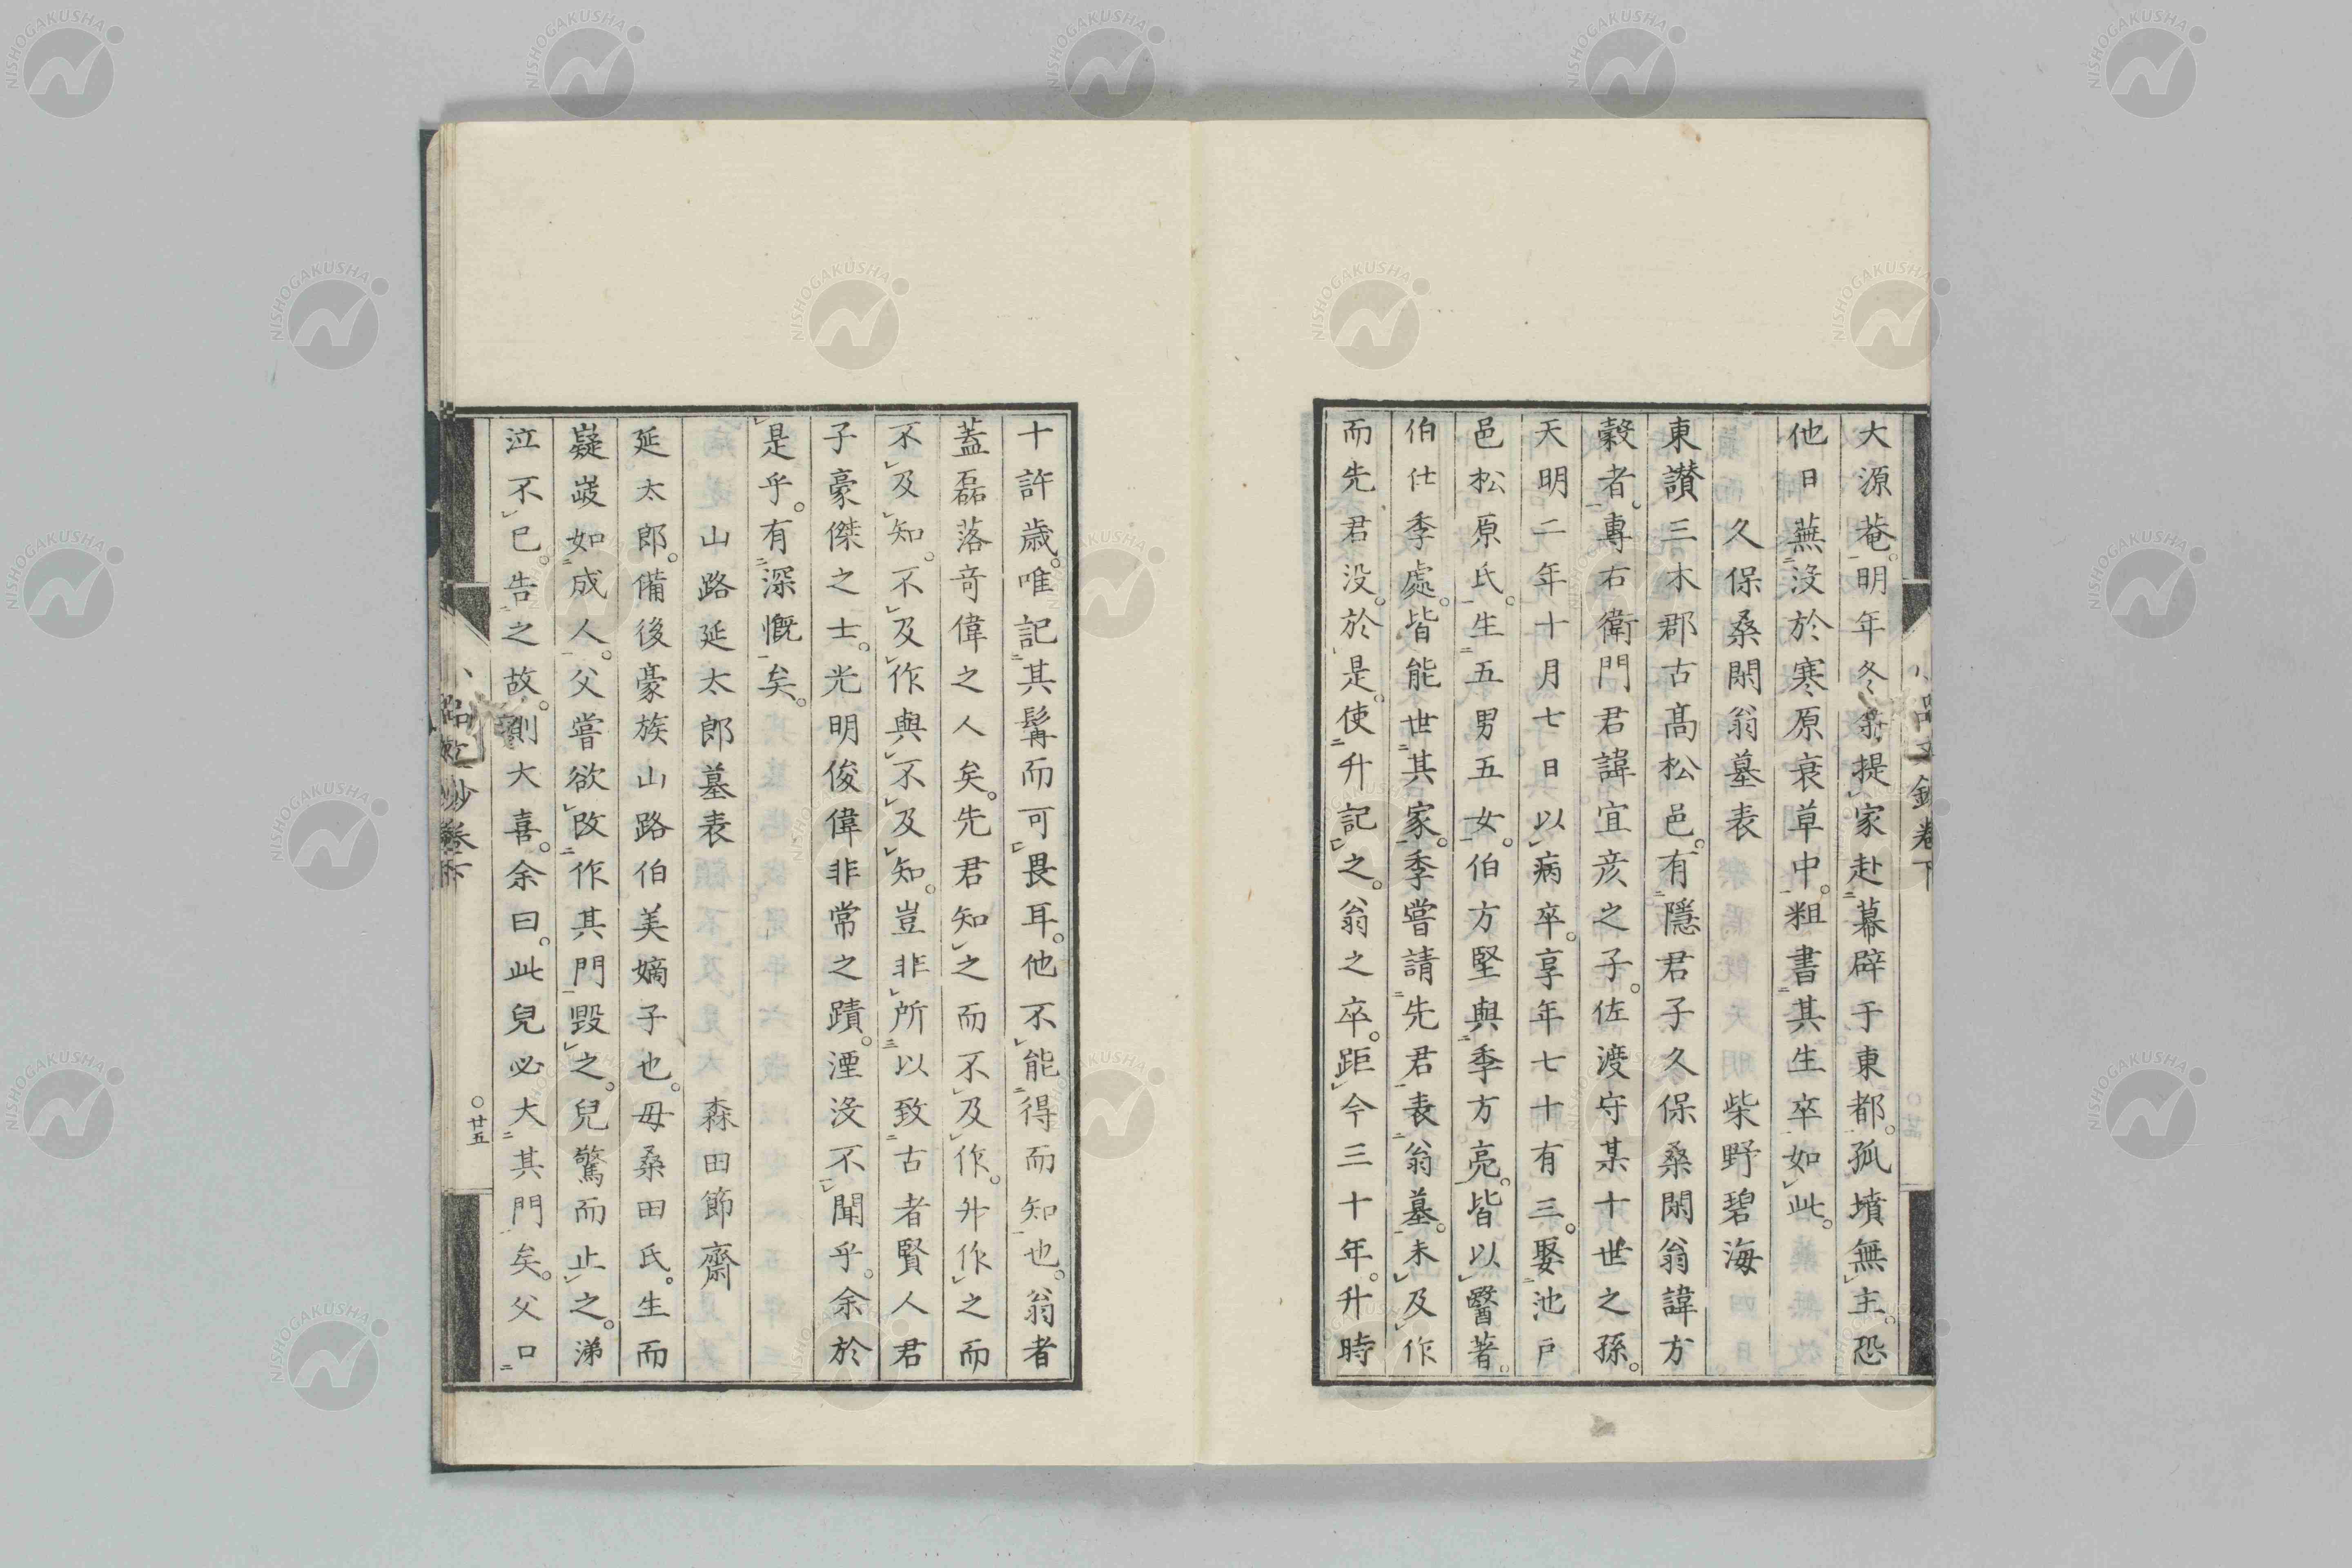 大源菴。明年冬翁提家赴幕辟于東都。孤墳無主。恐
他日蕪沒於寒原衰草中。粗書其生卒如此。
久保桑閑翁墓表 柴野碧海
東讃三木郡古高松邑。有隱君子久保桑閑翁諱方
穀者。專右衛門君諱宜彦之子。佐渡守某十世之孫。
天明二年十月七日以病卒。享年七十有三。娶池戸
邑松原氏。生五男五女。伯方堅與季方亮。皆以醫著。
伯仕季處。皆能世其家。季嘗請先君表翁墓。未及作
而先君没。於是。使升記之。翁之卒。距今三十年。升時
十許歳。唯記其髯而可畏耳。他不能得而知也。翁者
蓋磊落竒偉之人矣。先君知之而不及作。升作之而
不及知。不及作與不及知。豈非所以致古者賢人君
子豪傑之士。光明俊偉非常之蹟。湮沒不聞乎。余於
是乎。有深慨矣。
山路延太郎墓表 森田節齋
延太郎。備後豪族山路伯美嫡子也。母桑田氏。生而
嶷嶷如成人。父嘗欲改作其門毀之。兒驚而止之。涕
泣不已。告之故。則大喜。余曰。此兒必大其門矣。父口
卷下
〇廿五
NISHOGAKUSHA